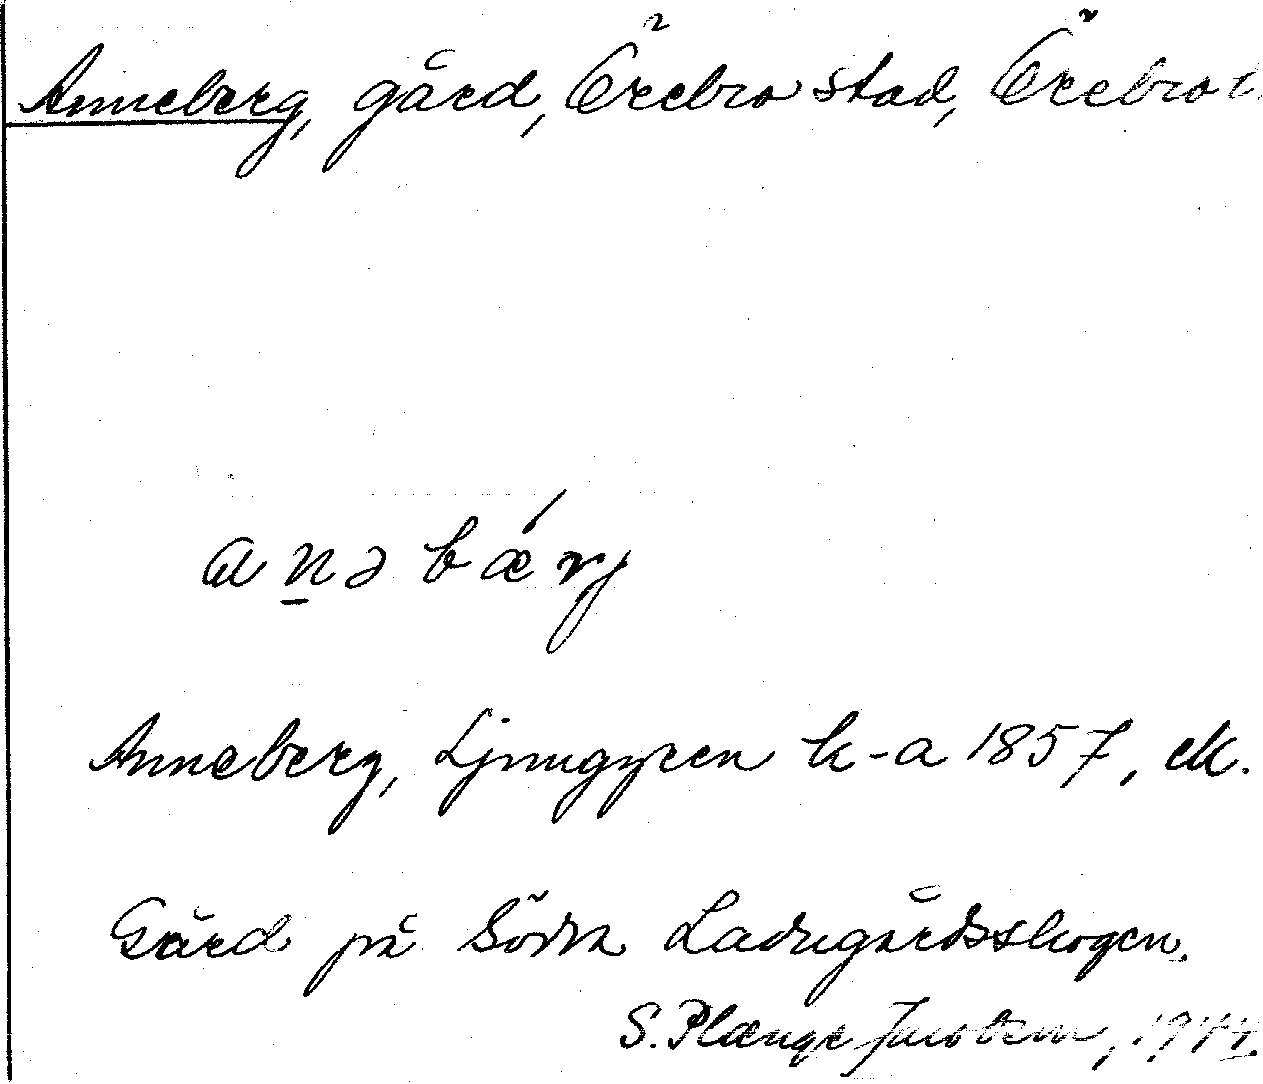 Anneberg, gård, Örebro stad, Örebro l.
anəbærj
Anneberg, Ljunggren k-a 1857, ek.
Gård på Södra Ladugårdsskogen.
S. Plænge Jacobsen, 1944.